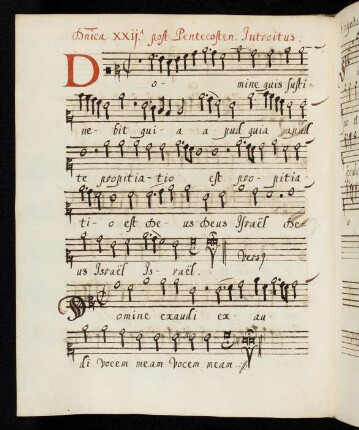 Dñica XXIJ.ª post Pentecosten. Introitus.
Do- mine quis susti-
ne- bit quia a apud quia apud
te propitia-tio est pro-pitia-
ti-o est De-us Deus Israël De-
us Israël Is-raël. Versq.
Domine exaudi ex-au-
di vocem meam vocem meam